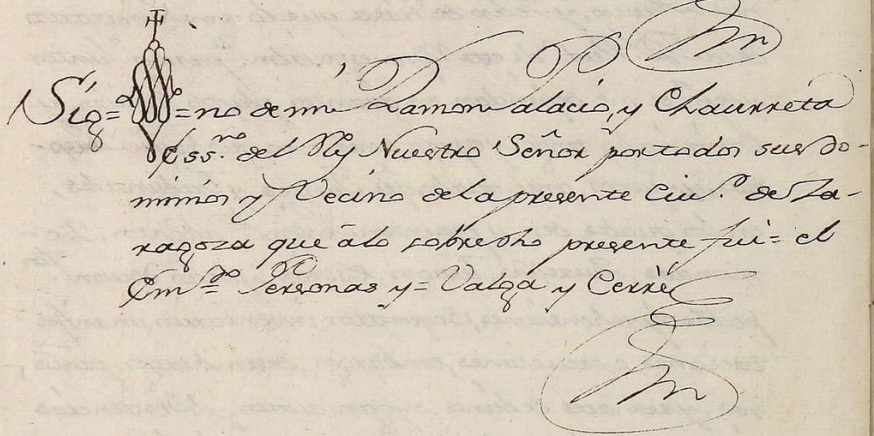 Sig=no de mi Ramon Palacio, y Chaurreta
Ess.no del Rey Nuestro Señor por todos sus Do-
minios y Vecino de la presente Ciu.d de Za-
ragoza que â lo sobredho presente fui= el
Em.do Personas y= Valga y Cerrè